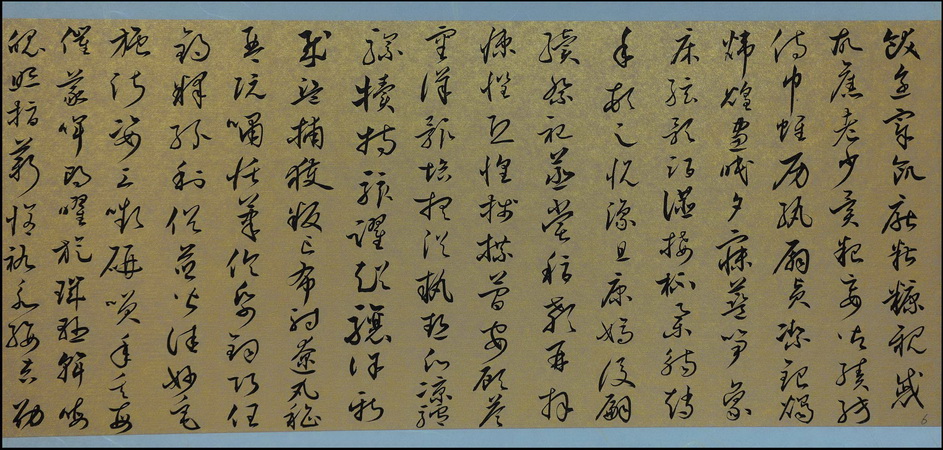 飫烹宰飢厭糟糠親戚
故舊老少異糧妾御績紡
侍巾帷房紈扇圓潔銀燭
煒煌晝眠夕寐藍筍象
床弦歌酒讌接杯舉觴矯
手頓足悅豫且康嫡後嗣
續祭祀蒸嘗稽顙再拜
悚懼恐惶牋牒簡要顧答
審詳骸垢想浴執熱願涼驢
騾犢特駭躍超驤誅斬
賊盜捕獲叛亡布射遼丸嵇
琴阮嘯恬筆倫紙鈞巧任
釣釋紛利俗並皆佳妙毛
施淑姿工顰妍笑年矢每
催羲暉朗曜旋璣懸斡晦
魄照指薪修祜永綏吉劭